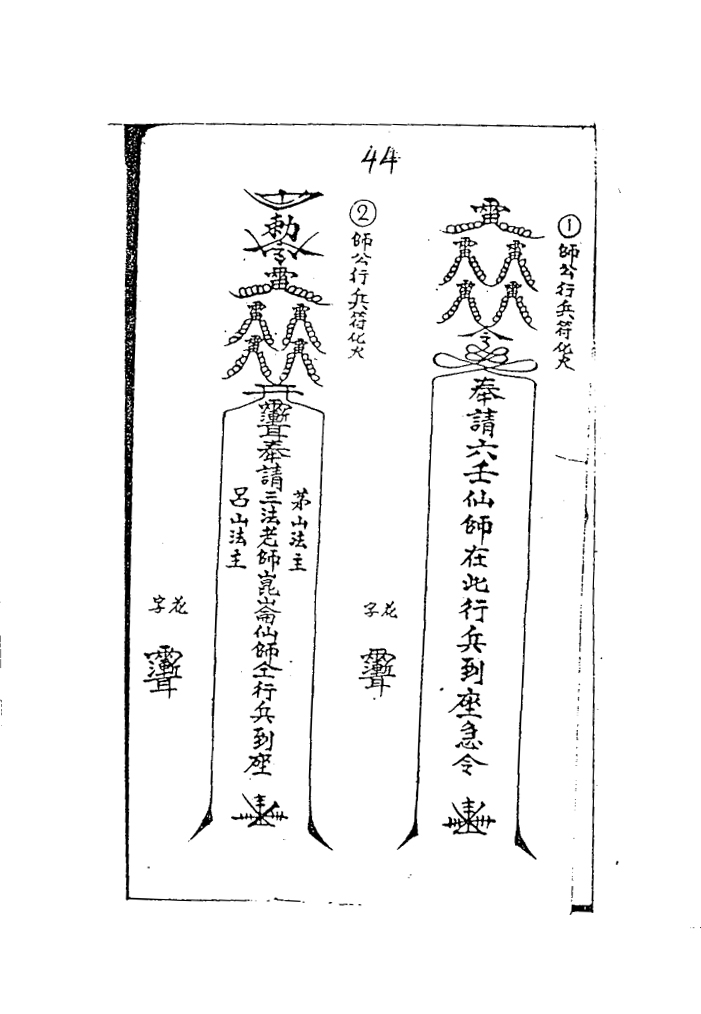 44
①師公行兵符化火
雷
雷雷
雷雷
令
奉請六壬仙師在此行兵到座急令
花字
②師公行兵符化火
勅令
雷
雷雷
雷雷
奉請三法老師崑崙仙師仝行兵到座
茅山法主
呂山法主
花字